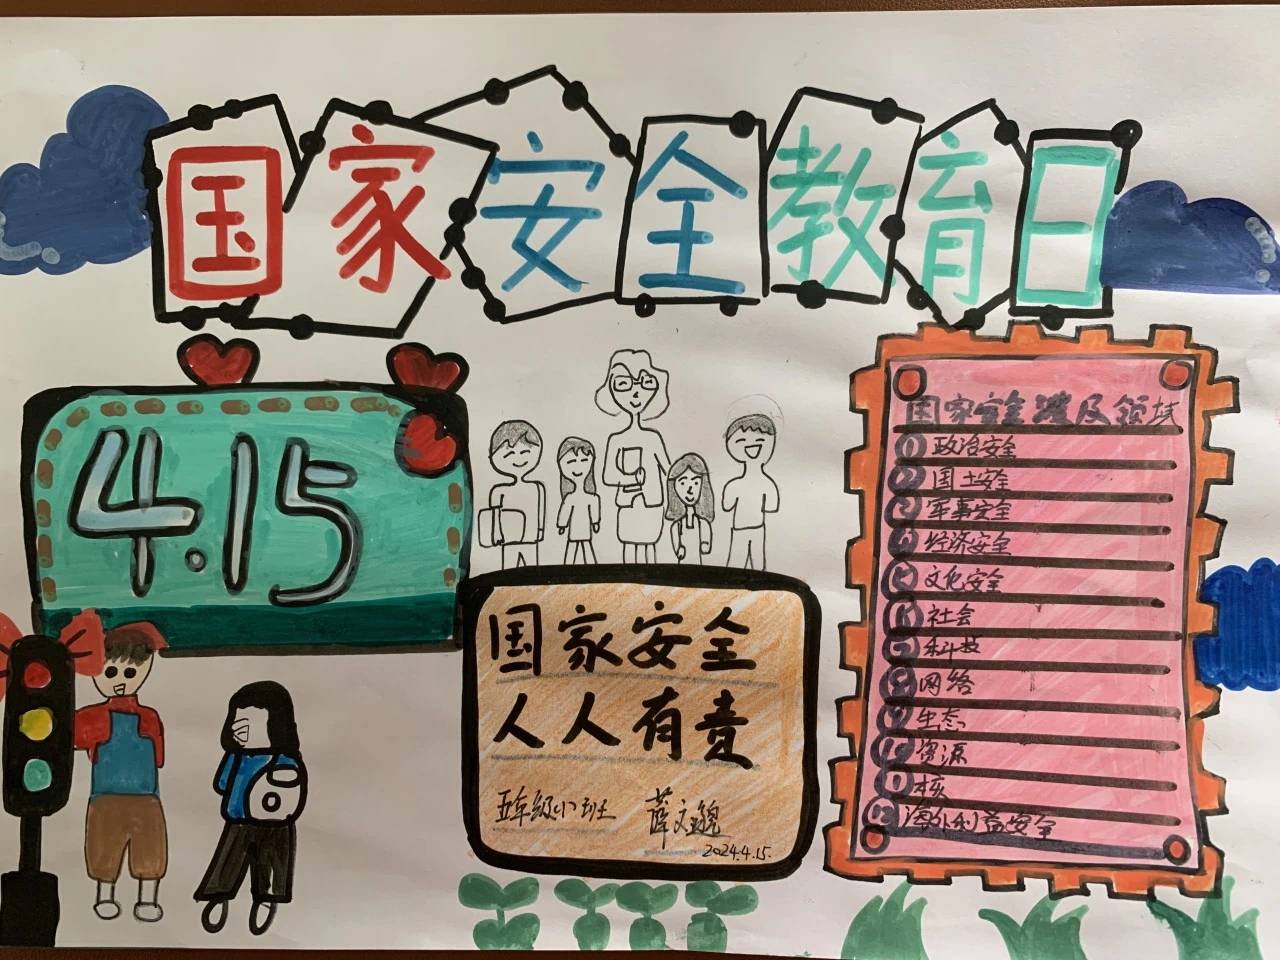 国家安全教育日
4.15
国家安全
人人有责
五年级小班 薛文
2024.4.15.
国家安全涉及领域
①政治安全
②国土安全
③军事安全
④经济安全
⑤文化安全
⑥社会
⑦科技
⑧网络
⑨生态
⑩资源
⑪核
⑫海外利益安全